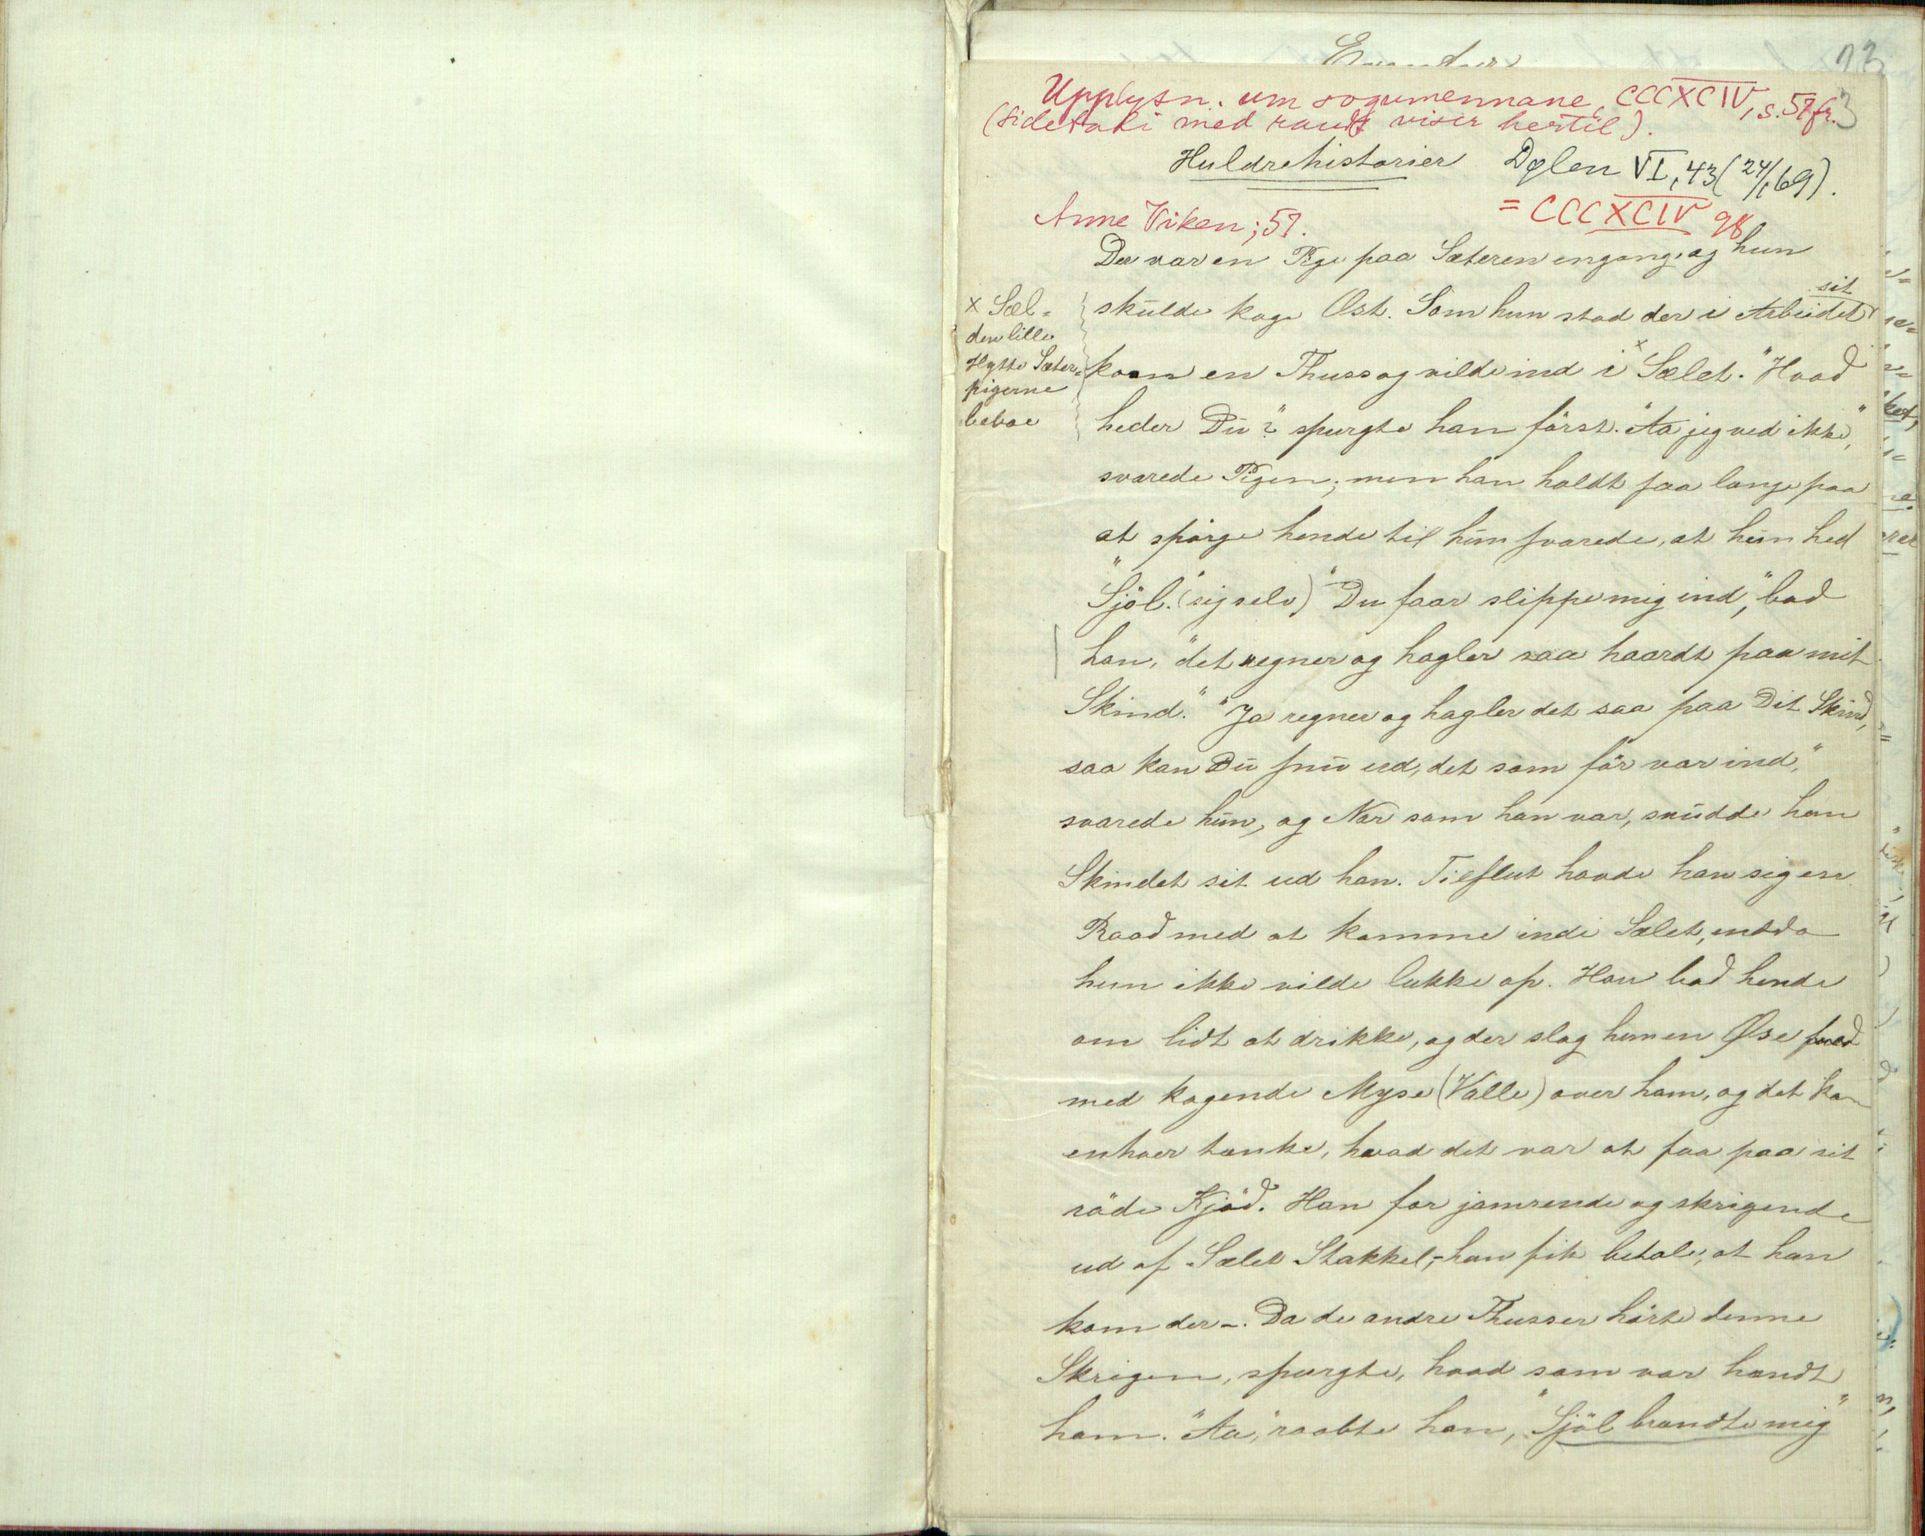 23
Upplysn. um sogumennane, CCCXCIV, s. 57 fr.
(sidetali med raudt viser hertil).
Huldrehistorier Dølen VI, 43 (24/1 69).
= CCCXCIV 98
Anne Viken; 57.
Der var en Pige paa Sæteren engang, og hun
skulde koge Ost. Som hun stod der i Arbeidet sit
kom en Thuss og vilde ind i x Sælet. "Hvad
heder Du?" spurgte han först. "Aa jeg ved ikke,"
svarede Pigen; men han holdt saa længe paa
at spörge hende til hun svarede, at hun hed
"Sjöl." (sig selv) "Du faar slippe mig ind," bad
han, "det regner og hagler saa haardt paa mit
Skind." "Ja regner og hagler det saa paa Dit Skind,
saa kan Du snu ud, det som för var ind,"
svarede hun, og Nar som han var, snudde han
Skindet sit ud han. Tilslut havde han sig en
Raad med at komme ind i Sælet, endda
hun ikke vilde lukke op. Han bad hende
om lidt at drikke, og der slog hun en Øse
med kogende Myse (Valle) over ham, og det kan
enhver tænke, hvad det var at faa paa sit
röde Kjöd. Han for jamrende og skrigende
ud af Sælet Stakkel, - han fik betale, at han
kom der -. Da de andre Thusser hörte denne
Skrigen, spurgte, hvad som var hændt
ham. "Aa," raabte han, "Sjöl brændte mig"
x Sæl =
den lille
Hytte Sæter=
pigerne
beboe